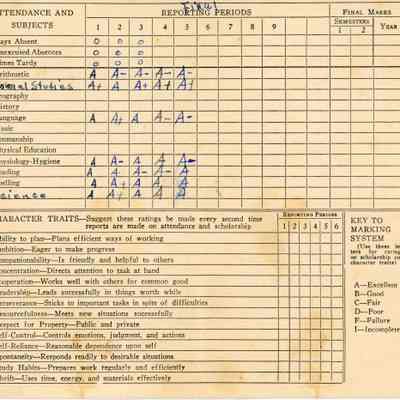 Final
TTENDANCE AND SUBJECTS REPORTING PERIODS FINAL MARKS
SEMESTERS YEAR
1 2 3 4 5 6 7 8 9 1 2
ays Absent 0 0 0
nexcused Absences 0 0 0
imes Tardy 0 0 0
rithmetic A A- A- A- A-
Social Studies A+ A A+ A+ A+
eography
istory
anguage A A+ A A- A-
usic
enmanship
hysical Education
hysiology-Hygiene A A- A A A-
eading A A- A- A- A
pelling A A+ A A A
Science A A+ A A A
HARACTER TRAITS—Suggest these ratings be made every second time
reports are made on attendance and scholarship
REPORTING PERIODS
1 2 3 4 5 6
bility to plan—Plans efficient ways of working
mbition—Eager to make progress
ompanionability—Is friendly and helpful to others
oncentration—Directs attention to task at hand
ooperation—Works well with others for common good
eadership—Leads successfully in things worth while
erseverance—Sticks to important tasks in spite of difficulties
esourcefulness—Meets new situations successfully
espect for Property—Public and private
elf-Control—Controls emotions, judgment, and actions
elf-Reliance—Reasonable dependence upon self
pontaneity—Responds readily to desirable situations
tudy Habits—Prepares work regularly and efficiently
hrift—Uses time, energy, and materials effectively
KEY TO
MARKING
SYSTEM
(Use these let
ters for rating
on scholarship and
character traits)
A—Excellent
B—Good
C—Fair
D—Poor
F—Failure
I—Incomplete